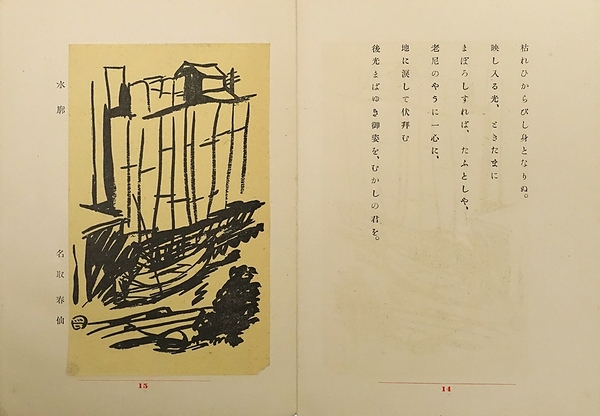 枯れひからびし身となりぬ。
映し入る光、ときたまに
まぼろしすれば、たふとしや、
老尼のやうに一心に、
地に涙して伏拝む
後光まばゆき御姿を、むかしの君を。
14
水廓
名取春仙
15